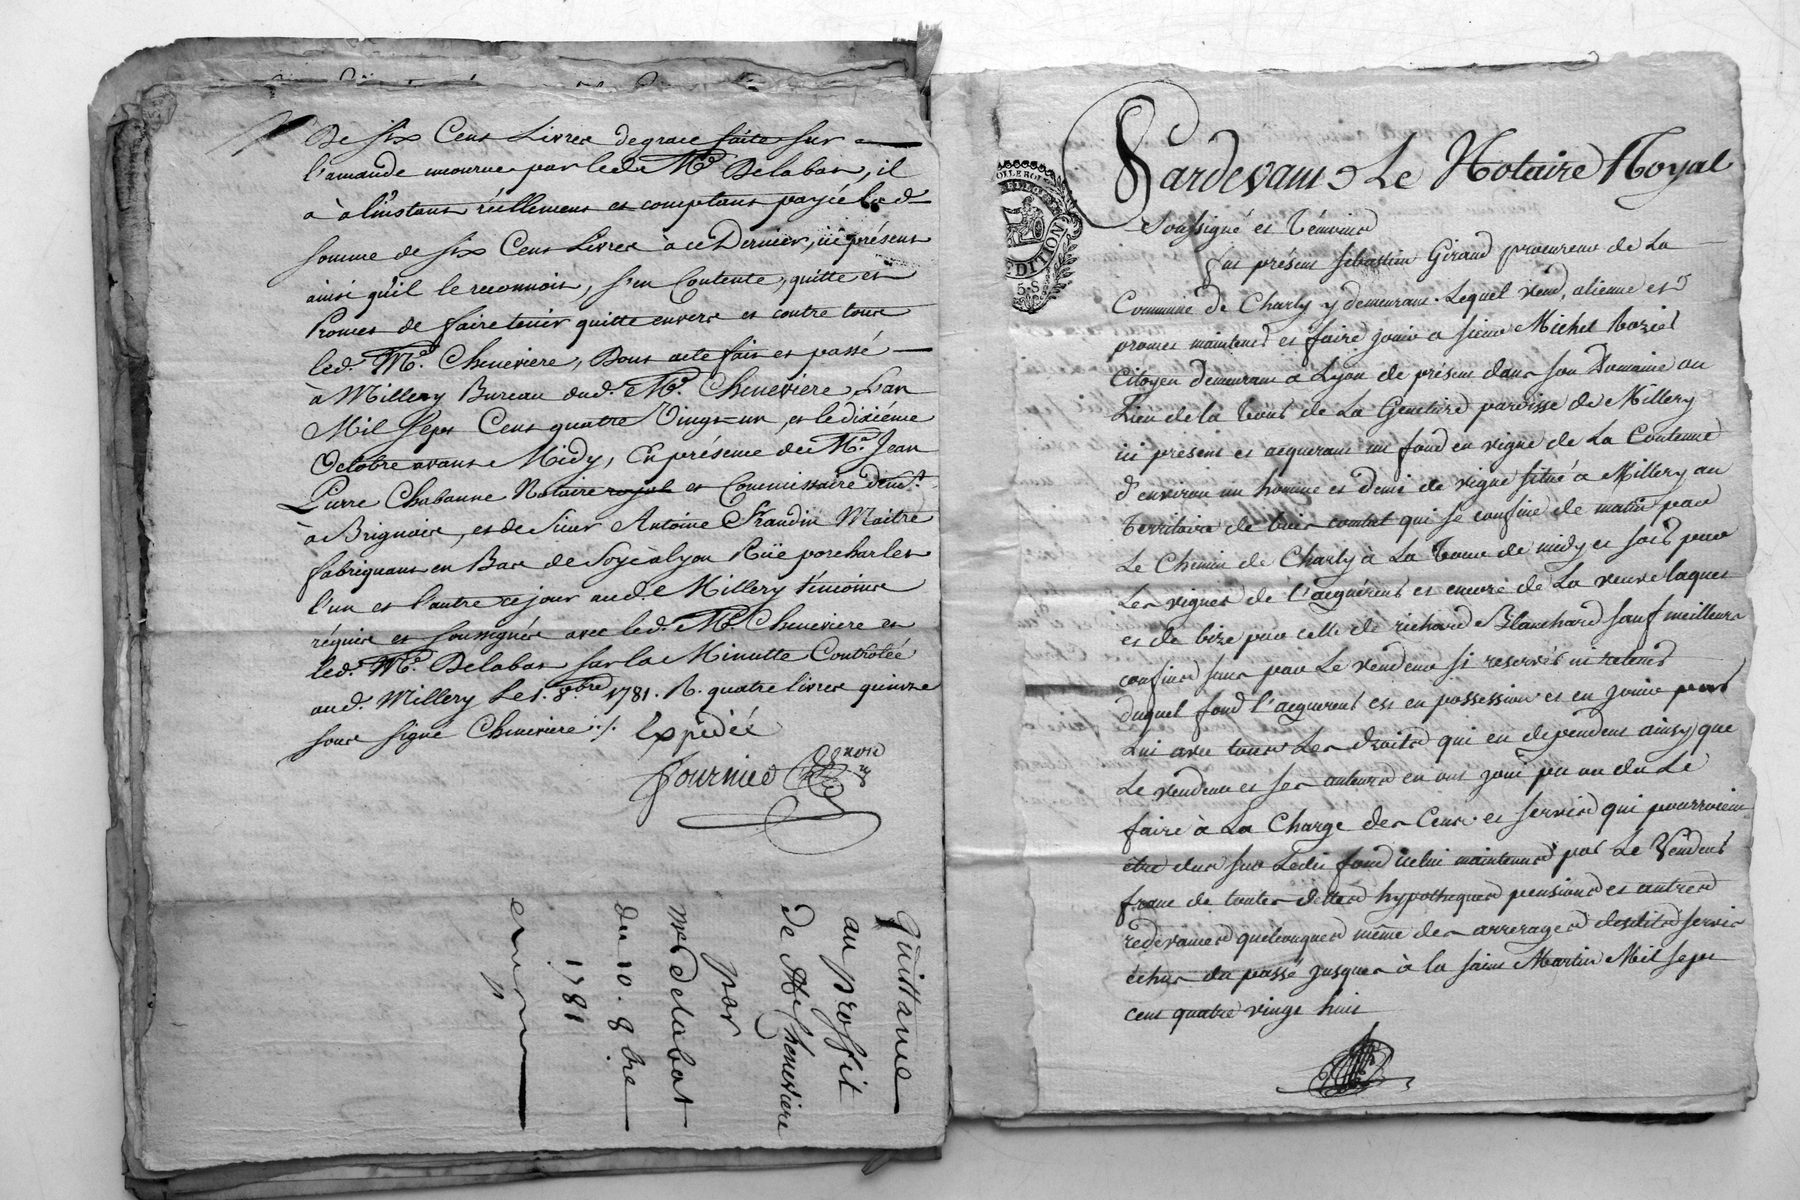 De six Cens Livres de grace faite sur
l'amande encourue par led. Me. Delabat, il
a à l'instant réellement et comptant payé lad.
somme de six Cens Livres à ce Dernier, ici présent
ainsi qu'il le reconnoit, s'en Contente, quitte et
Promet de faire tenir quitte envers et contre tous
led. Me. Cheneviere, Dont acte fait et passé
à Millery Bureau dud. Me. Cheneviere, L'an
Mil Sept Cens quatre Vingt-un, et le dixiéme
Octobre avant Midy, En présence de Me. Jean
Pierre Chabanne Notaire royal et Commissaire demt.
à Brignais, et de Sieur Antoine Frandin Maitre
fabriquant en Bas de Soye à Lyon Rüe
l'un et l'autre ce jour aud. Millery témoins
réquis et soussignés avec led. Me. Cheneviere et
led. Me. Delabat sur la Minutte Controlée
aud. Millery le 8bre 1781. R. quatre livres quinze
sous signé Cheneviere ./. Expédié
Fournier
Quittance
au proffit
de Me Cheneviere
par
Mre delabat
du 10. 8bre
1781
Pardevant Le Notaire Royal
Soussigné et Témoins
fut présent Sébastien Giraud procureur de La
Commune de Charly y demeurant. Lequel vend, aliene et
promet maintenir et faire jouir a sieur Michel
Citoyen demeurant a Lyon de présent dans son Domaine au
Lieu de la Tour de La Gentiere paroisse de Millery
ici présent et acquerant un fond en vigne de La Contenue
d'environ un homme et demi de vigne situé a Millery au
Territoire de combet qui se confine de matin par
Le Chemin de Charly à La Tour de midy et soir par
Les vignes de l'acquéreur et encore de La veuve Laques
et de bize par celle de richard Blanchard sauf meilleurs
confins sans par Le vendeur si reserver ni retenir
duquel fond l'acquereur est en possession et en jouir pour
Lui avec tous Les droits qui en dépendent ainsy que
Le vendeur et ses auteurs en ont joui pu ou du Le
faire à La Charge des Cens et servis qui pourroient
etre dus sur Ledit fond icelui maintenu par Le Vendeur
franc de toutes dettes hypotheques pensions et autres
redevances quelconques même des arrerages desdits servis
échus du passé jusques à la saint Martin Mil sept
cent quatre vingt huit